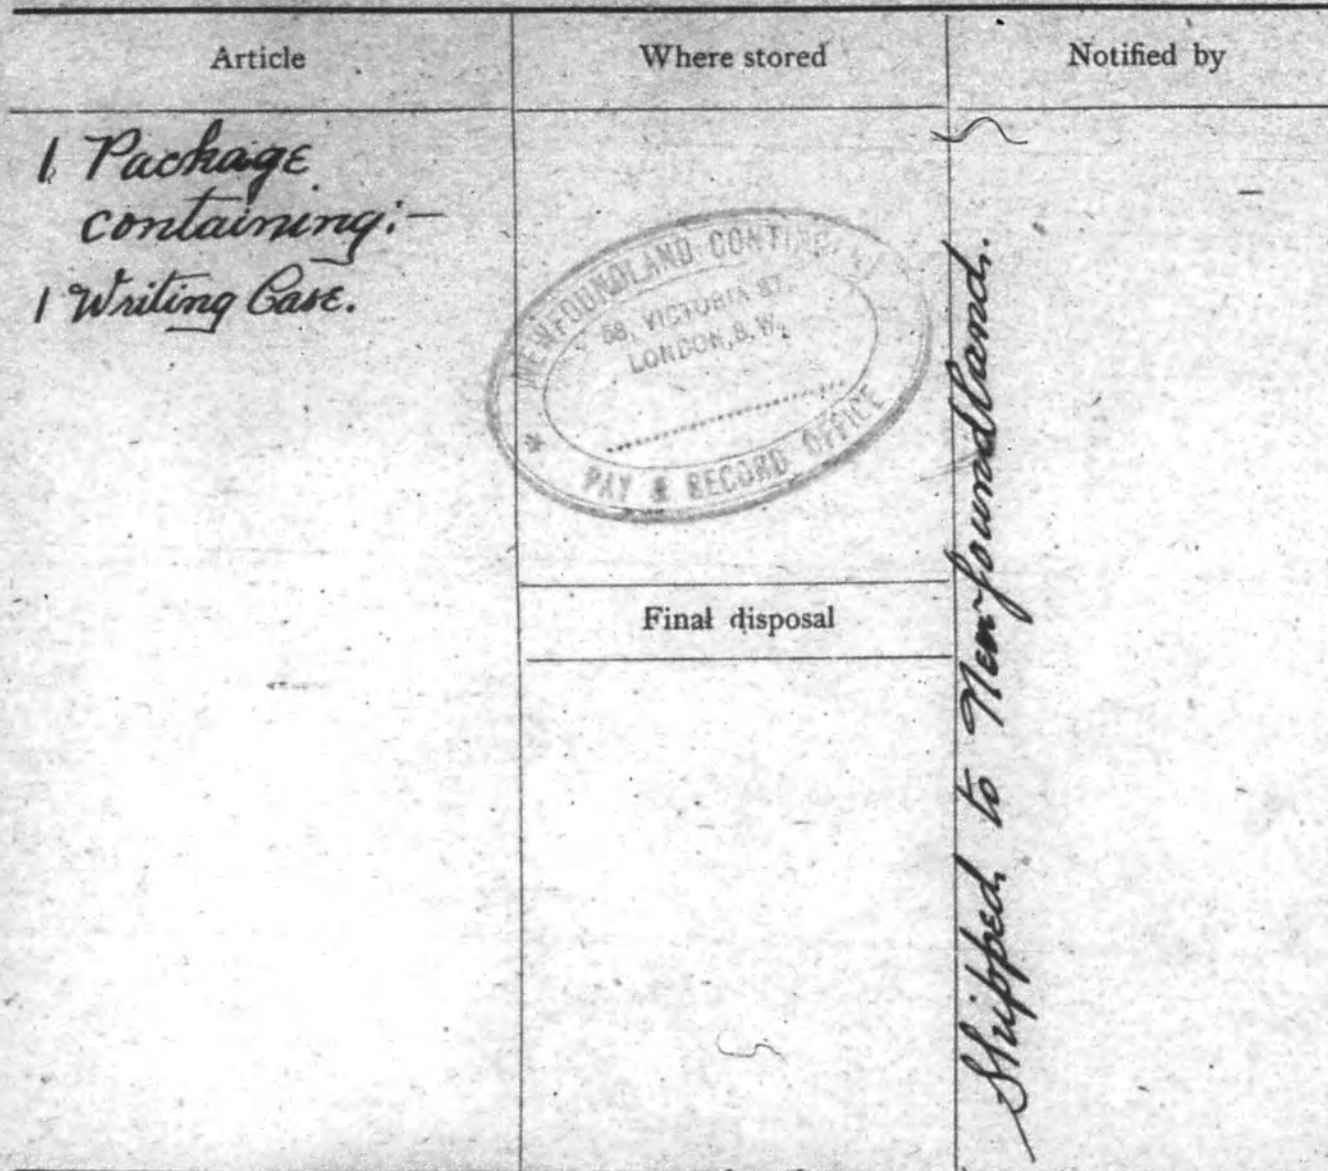 Article
Where stored
Notified by
1 Package
containing:-
1 Writing Case.
NEWFOUNDLAND CONTINGENT
58, VICTORIA ST.
LONDON, S.W.1
* PAY & RECORD OFFICE
Final disposal
Shipped to Newfoundland.